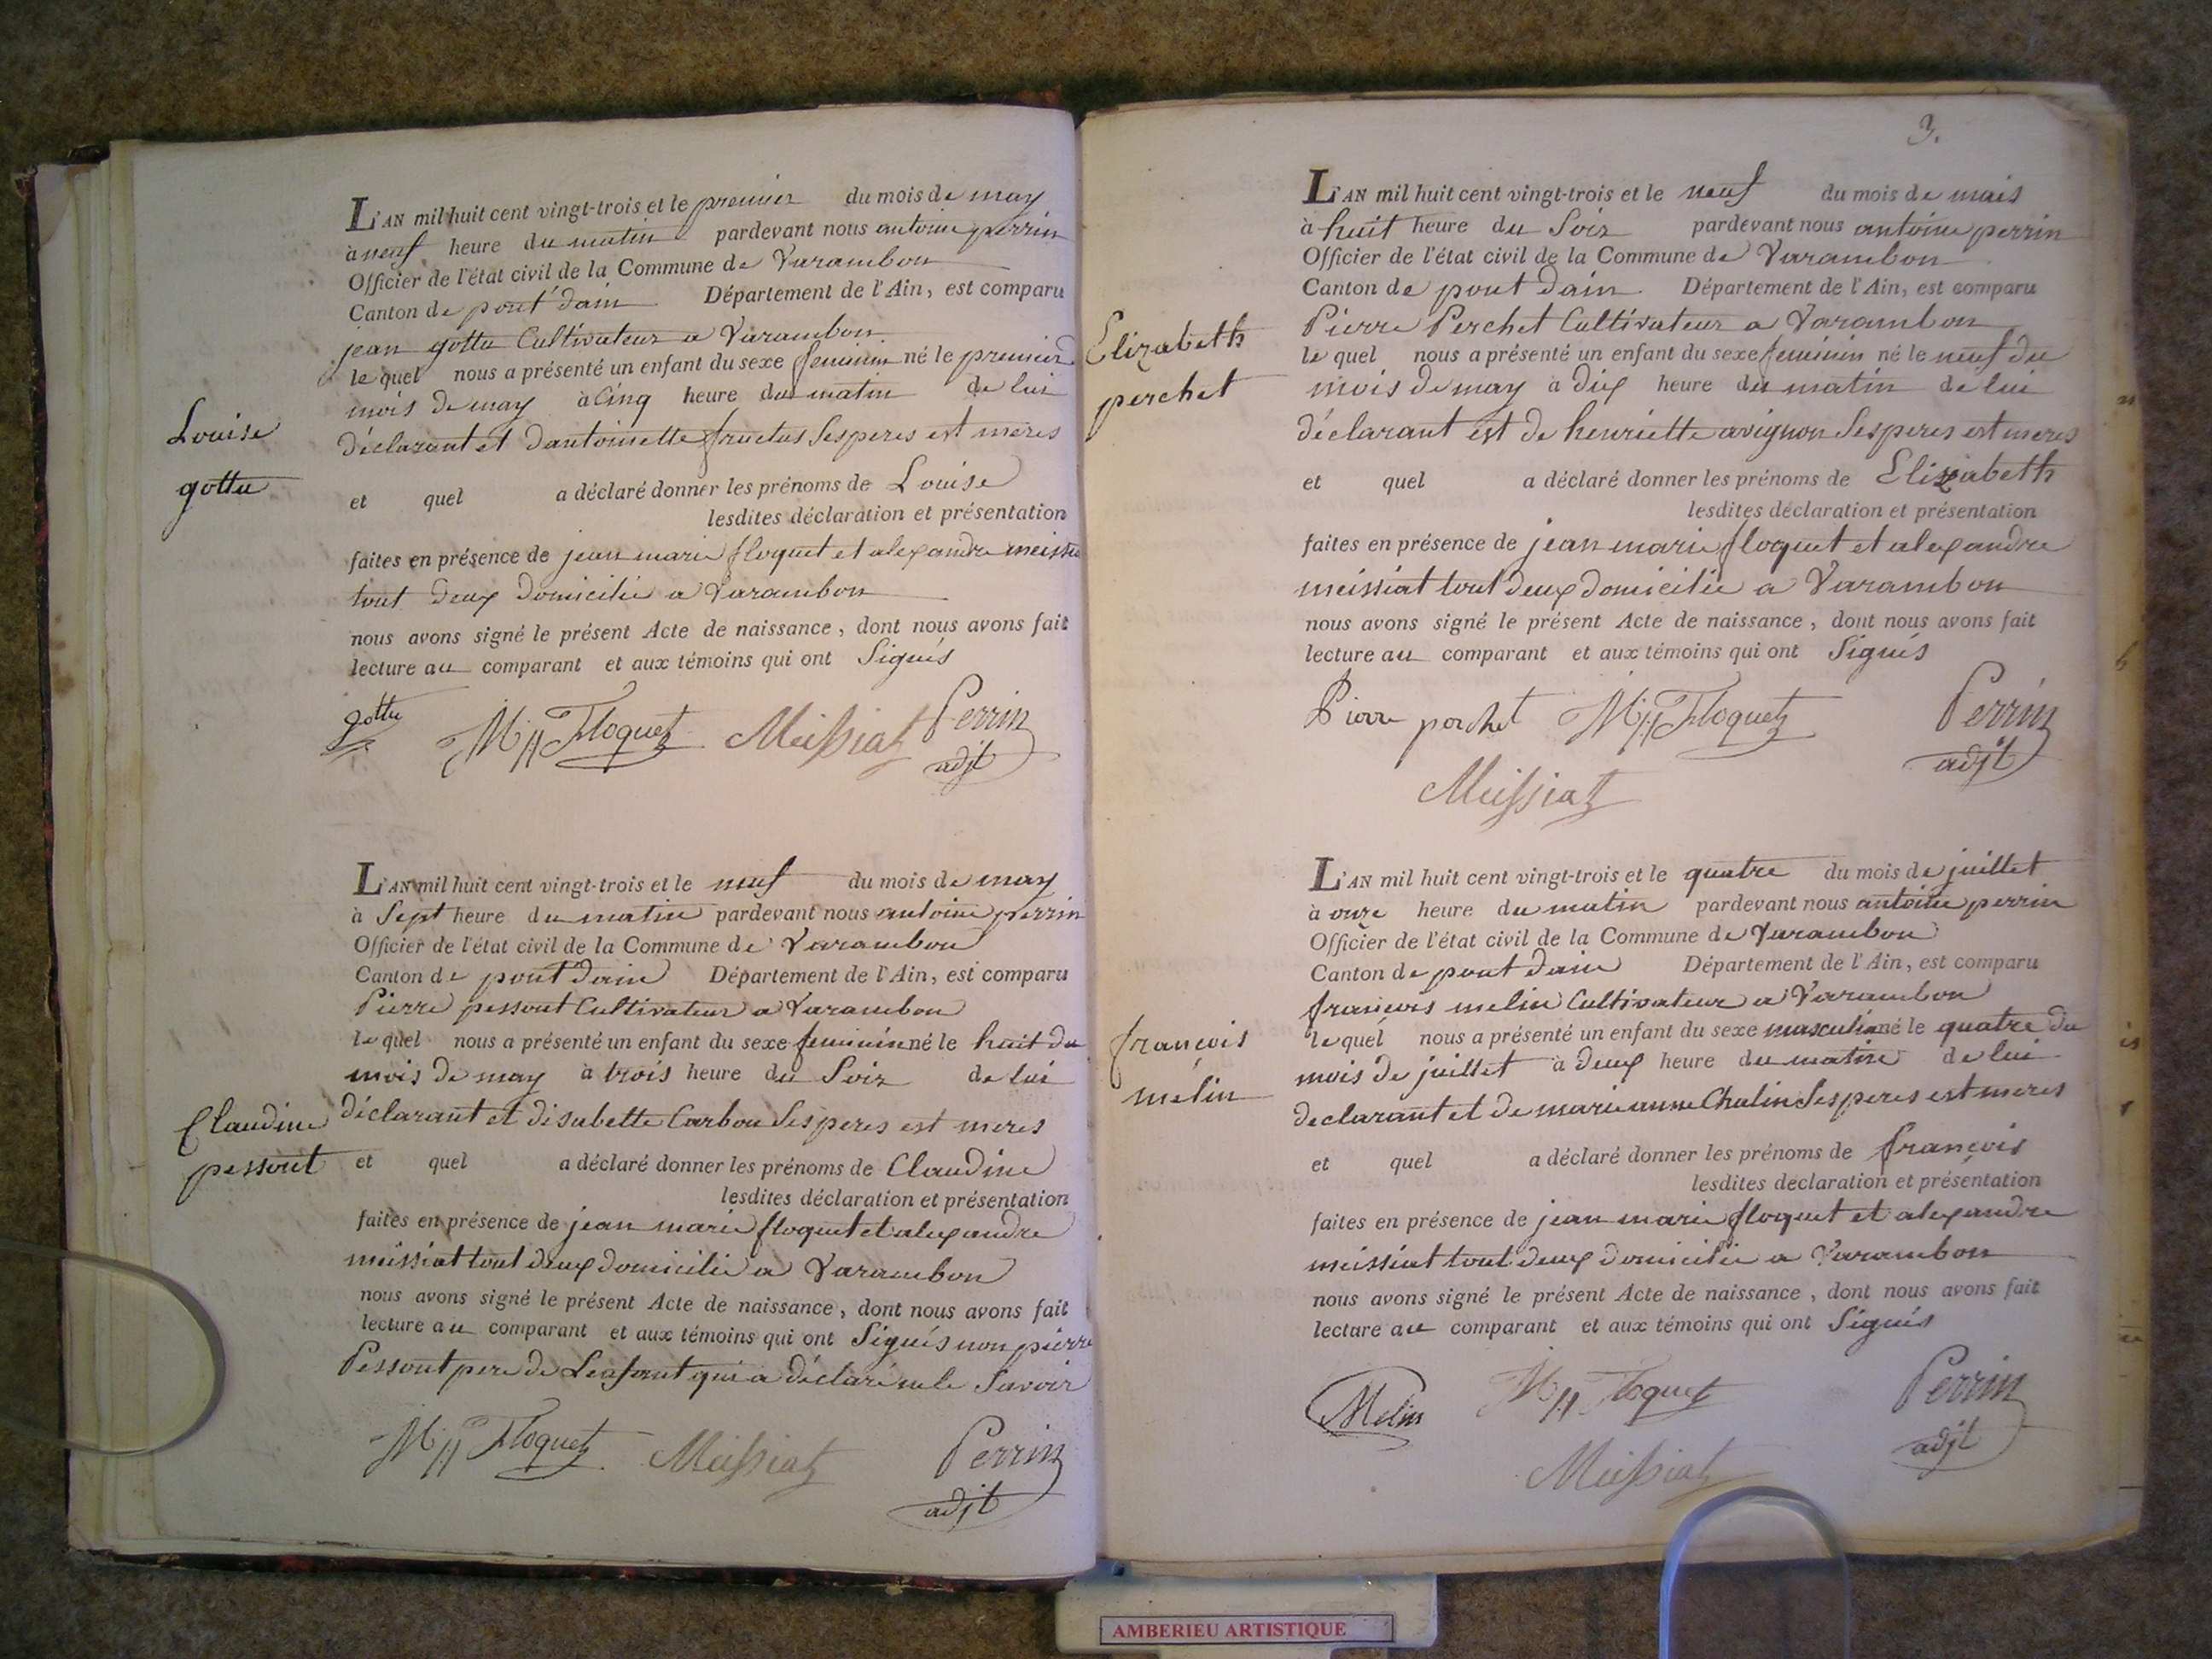 L'AN mil huit cent vingt-trois et le premier du mois de may
à neuf heure du matin pardevant nous antoine perrin
Officier de l'état civil de la Commune de Varambon
Canton de pont dain Département de l'Ain, est comparu
jean gottu Cultivateur a Varambon
le quel nous a présenté un enfant du sexe feminin né le premier
mois de may à Cinq heure du matin de lui
Louise
déclarant et dantoinette fructus Ses peres est meres
gottu
et quel a déclaré donner les prénoms de Louise
lesdites déclaration et présentation
faites en présence de jean marie floquet et alexandre
tout deux domicilie a Varambon
nous avons signé le présent Acte de naissance, dont nous avons fait
lecture au comparant et aux témoins qui ont Signés
gottu M Floquet Meissiat Perrin
adjt
L'AN mil huit cent vingt-trois et le neuf du mois de may
à Sept heure du matin pardevant nous antoine perrin
Officier de l'état civil de la Commune de Varambon
Canton de pont dain Département de l'Ain, est comparu
Pierre pessout Cultivateur a Varambon
le quel nous a présenté un enfant du sexe feminin né le huit du
mois de may à trois heure du Soir de lui
Claudine
déclarant et disabette Carbon Ses peres est meres
pessout
et quel a déclaré donner les prénoms de Claudine
lesdites déclaration et présentation
faites en présence de jean marie floquet et alexandre
meissiat tout deux domicilie a Varambon
nous avons signé le présent Acte de naissance, dont nous avons fait
lecture au comparant et aux témoins qui ont Signés non pierre
Pessout pere de Lenfant qui a déclaré ne le Savoir
M Floquet Meissiat Perrin
adjt
3.
L'AN mil huit cent vingt-trois et le neuf du mois de mais
à huit heure du Soir pardevant nous antoine perrin
Officier de l'état civil de la Commune de Varambon
Canton de pont dain Département de l'Ain, est comparu
Pierre Perchet Cultivateur a Varambon
Elizabeth
le quel nous a présenté un enfant du sexe feminin né le neuf du
perchet
mois de may à dix heure du matin de lui
déclarant est de henriette avignon Ses peres est meres
et quel a déclaré donner les prénoms de Elizabeth
lesdites déclaration et présentation
faites en présence de jean marie floquet et alexandre
meissiat tout deux domicilie a Varambon
nous avons signé le présent Acte de naissance, dont nous avons fait
lecture au comparant et aux témoins qui ont Signés
Pierre perchet M Floquet Perrin
adjt
Meissiat
L'AN mil huit cent vingt-trois et le quatre du mois de juillet
à onze heure du matin pardevant nous antoine perrin
Officier de l'état civil de la Commune de Varambon
Canton de pont dain Département de l'Ain, est comparu
francois melin Cultivateur a Varambon
francois
le quel nous a présenté un enfant du sexe masculin né le quatre du
melin
mois de juillet à deux heure du matin de lui
declarant et de marie anne Chalin Ses peres est meres
et quel a déclaré donner les prénoms de francois
lesdites déclaration et présentation
faites en présence de jean marie floquet et alexandre
meissiat tout deux domicilie a Varambon
nous avons signé le présent Acte de naissance, dont nous avons fait
lecture au comparant et aux témoins qui ont Signés
Melin M Floquet Perrin
adjt
Meissiat
AMBERIEU ARTISTIQUE